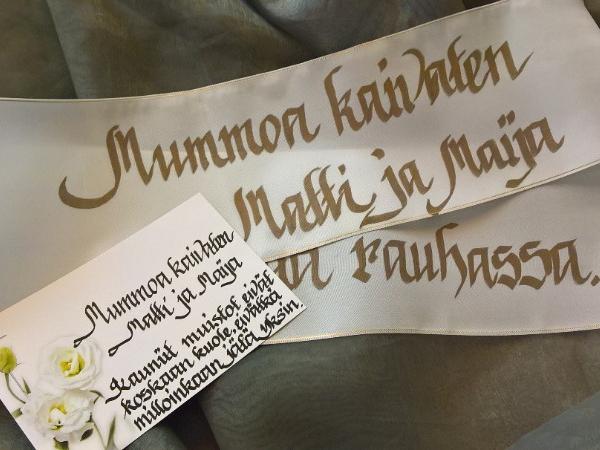 Mummoa kaivaten
Matti ja Maija
rauhassa.
Mummoa kaivaten
Matti ja Maija
Kauniit muistot eivät
koskaan kuole, eivätkä
milloinkaan jätä yksin.